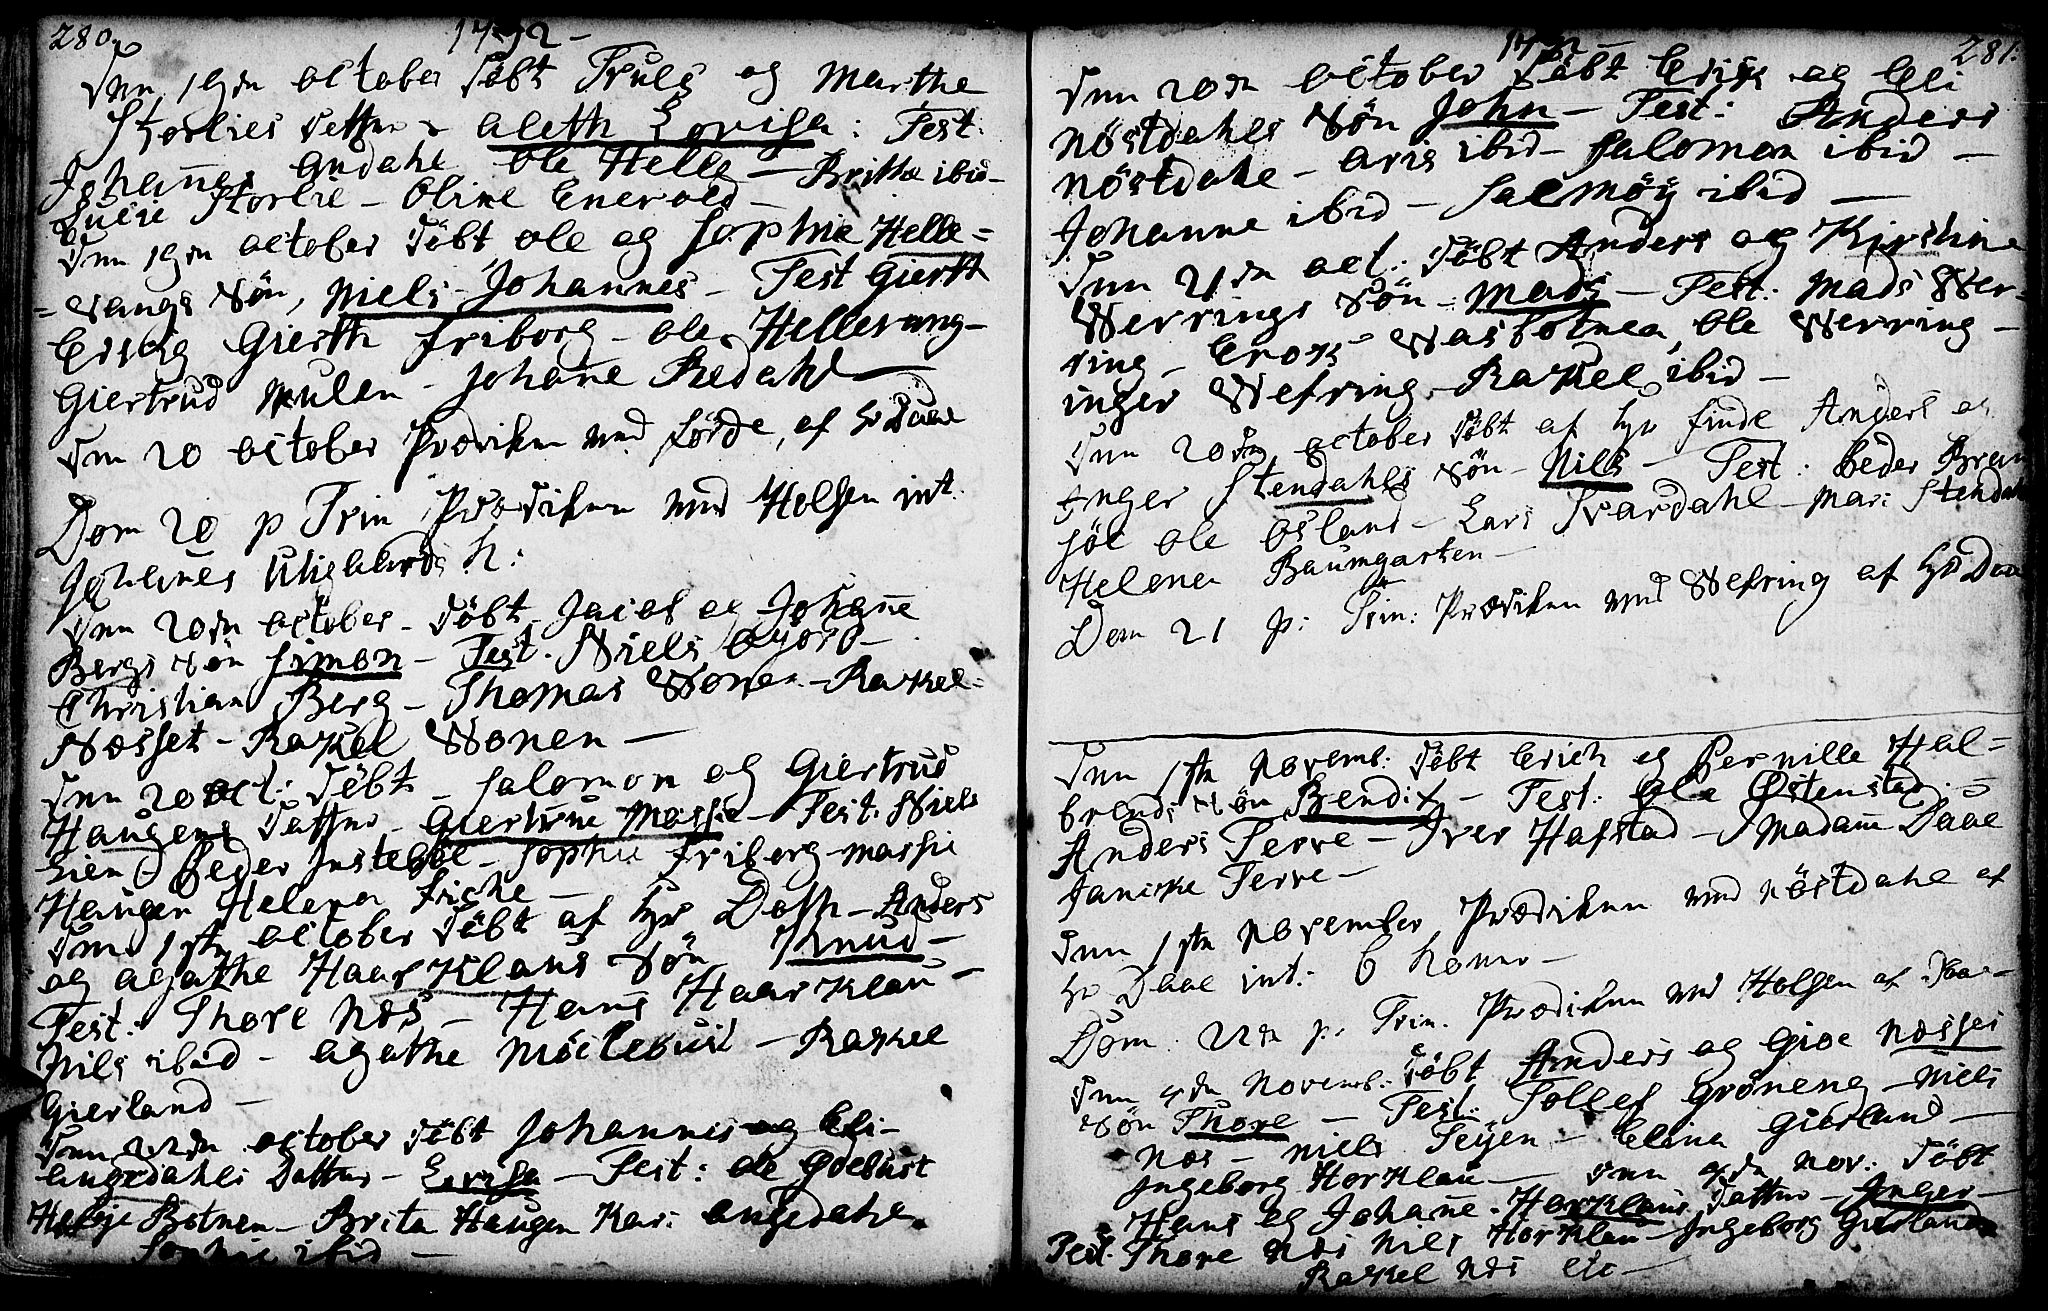 280.
1792 -
Den 19de october Döbt Truls og Marthe
Storlies Datter - Aleth Lovisa: Test:
Johannes Endahl Ole Helle - Brithe ibid -
Lucie Storlie - Oline Enervold -
Den 19de october Döbt Ole og Sophie Helle =
= vangs Sön, Niels Johannes - Test Gierth
Giertt Friborg - Ole Hellevang -
Giertrud Mulen - Johanne Redahl
Den 20 october Prædiken ved Förde, af Hr Daae
Dom 20 p Trin Prædiken ved Holsen int.
Johannes h:
Den 20de october - Döbt Jacob og Johanne
Bergs Sön Simon - Test. Niels
Christian Berg - Thomas Wonen - Rakel
Næsset - Rakel Wonen -
Den 20 oct: Döbt - Salomon og Giertrud
Haugens Datter - Giertrue Massie - Test: Niels
Lien Peder - Sophie Friborg - Massie
Haugen Helena Friche -
Den 1ste october Döbt af Hr Doth - Anders
og Agathe Haarklaus Sön Knud -
Test: Thore Næs - Hans Haarklau -
Nils ibid - Agathe Möllebust - Rakel
Gierland -
Den 22de october Döbt Johannes og Eli -
Angedahls Datter - Lovisa - Test: Ole
Botnen - Brita Haugen Kari Angedahl
Sophie ibid -
1792 -
281:
Den 20de october Döbt Erich og Eli
Nöstdahls Sön John - Test: Anders
Nöstdahl - Aris ibid - Salomon ibid -
Johanne ibid - Salmöy ibid -
Den 21de oct: Döbt Anders og Kirstine
Werrings Sön - Mads - Test: Mads Wer =
ring - Wasbotnen, Ole Werring -
Inger Wefring - Rakel ibid -
Den 20de october Döbt af Hr Finde Anders og
Inger Stendahls Sön - Nils - Test: Peder
Ole Osland - Lars Svardahl - Mari Stendahl
Helene Baumgarten -
Dom 21 p: Trin: Prædiken ved Wefring af Hr Daae
Den 1ste Novemb: Döbt Erich og Pernille Hal =
brends Sön Bendix - Test: Ole Östenstad -
Anders Ferre - Iver Hafstad - Madam Daae
Janiche Ferre -
Den 1ste November Prædiken ved Nöstdahl af
Hr Daae int: 6 koner -
Dom: 22de p. Trin. Prædiken ved Holsen af Daae -
Den 4de Novemb. Döbt Anders og Gioe Næsses
Sön Thore - Test: Tollef Gröneng - Niels
Næs - Niels - Elina Gierland -
Ingeborg Horklau - Den 4de Nov: Döbt
Hans og Johanne Horklaus Datter - Inger -
Test. Thore Næs Nils Horklau - Ingeborg Gierland
Rakel Næs etc -